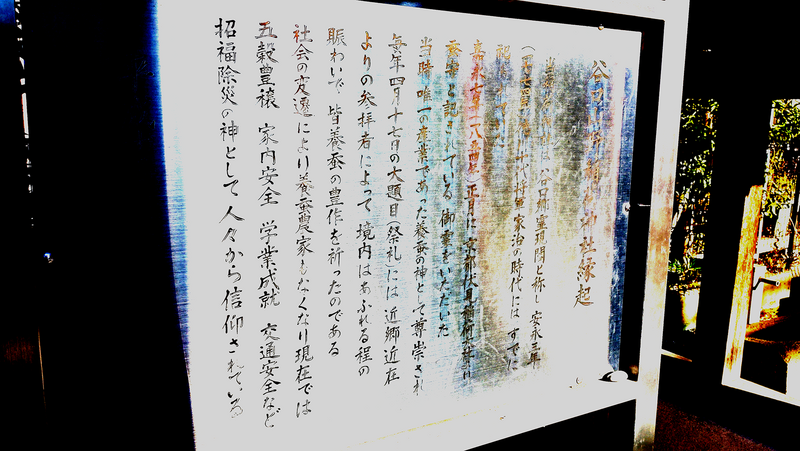 谷 稲荷神社縁起
当 は 谷口郷霊現閣と称し 安永三年
十代将軍家治の時代には すでに
嘉永七年 正月に 京都伏見稲荷
と記されている 御霊をいただいた
当時唯一の産業であった養蚕の神として尊崇され
毎年四月十七日の大題目(祭礼)には 近郷近在
よりの参拝者によって 境内はあふれる程の
賑わいで 皆養蚕の豊作を祈ったのである
社会の変遷により養蚕農家もなくなり現在では
五穀豊穣 家内安全 学業成就 交通安全など
招福除災の神として 人々から信仰されている